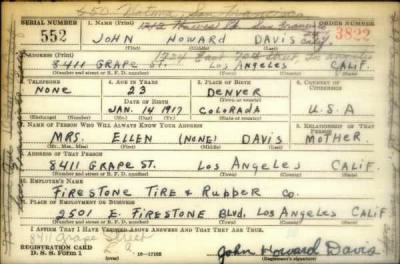 SERIAL NUMBER 1. NAME (Print) ORDER NUMBER
552 JOHN HOWARD DAVIS 3822
(First) (Middle) (Last)
2. ADDRESS (Print)
8411 GRAPE ST. LOS ANGELES CALIF.
(Number and street or R. F. D. number) (Town) (County) (State)
3. TELEPHONE 4. AGE IN YEARS 5. PLACE OF BIRTH 6. COUNTRY OF CITIZENSHIP
NONE 23 DENVER
DATE OF BIRTH (Town or county)
JAN. 14 1917 COLORADO U.S.A
(Exchange) (Number) (Mo.) (Day) (Yr.) (State or country)
7. NAME OF PERSON WHO WILL ALWAYS KNOW YOUR ADDRESS 8. RELATIONSHIP OF THAT PERSON
MRS. ELLEN (NONE) DAVIS MOTHER
(Mr., Mrs., Miss) (First) (Middle) (Last)
9. ADDRESS OF THAT PERSON
8411 GRAPE ST. LOS ANGELES CALIF
(Number and street or R. F. D. number) (Town) (County) (State)
10. EMPLOYER'S NAME
FIRESTONE TIRE & RUBBER CO.
11. PLACE OF EMPLOYMENT OR BUSINESS
2501 E. FIRESTONE BLVD. LOS ANGELES CALIF
(Number and street or R. F. D. number) (Town) (County) (State)
I AFFIRM THAT I HAVE VERIFIED ABOVE ANSWERS AND THAT THEY ARE TRUE.
8411 Grape Street
REGISTRATION CARD
D. S. S. Form 1 16—17105 John Howard Davis
(Registrant's signature)